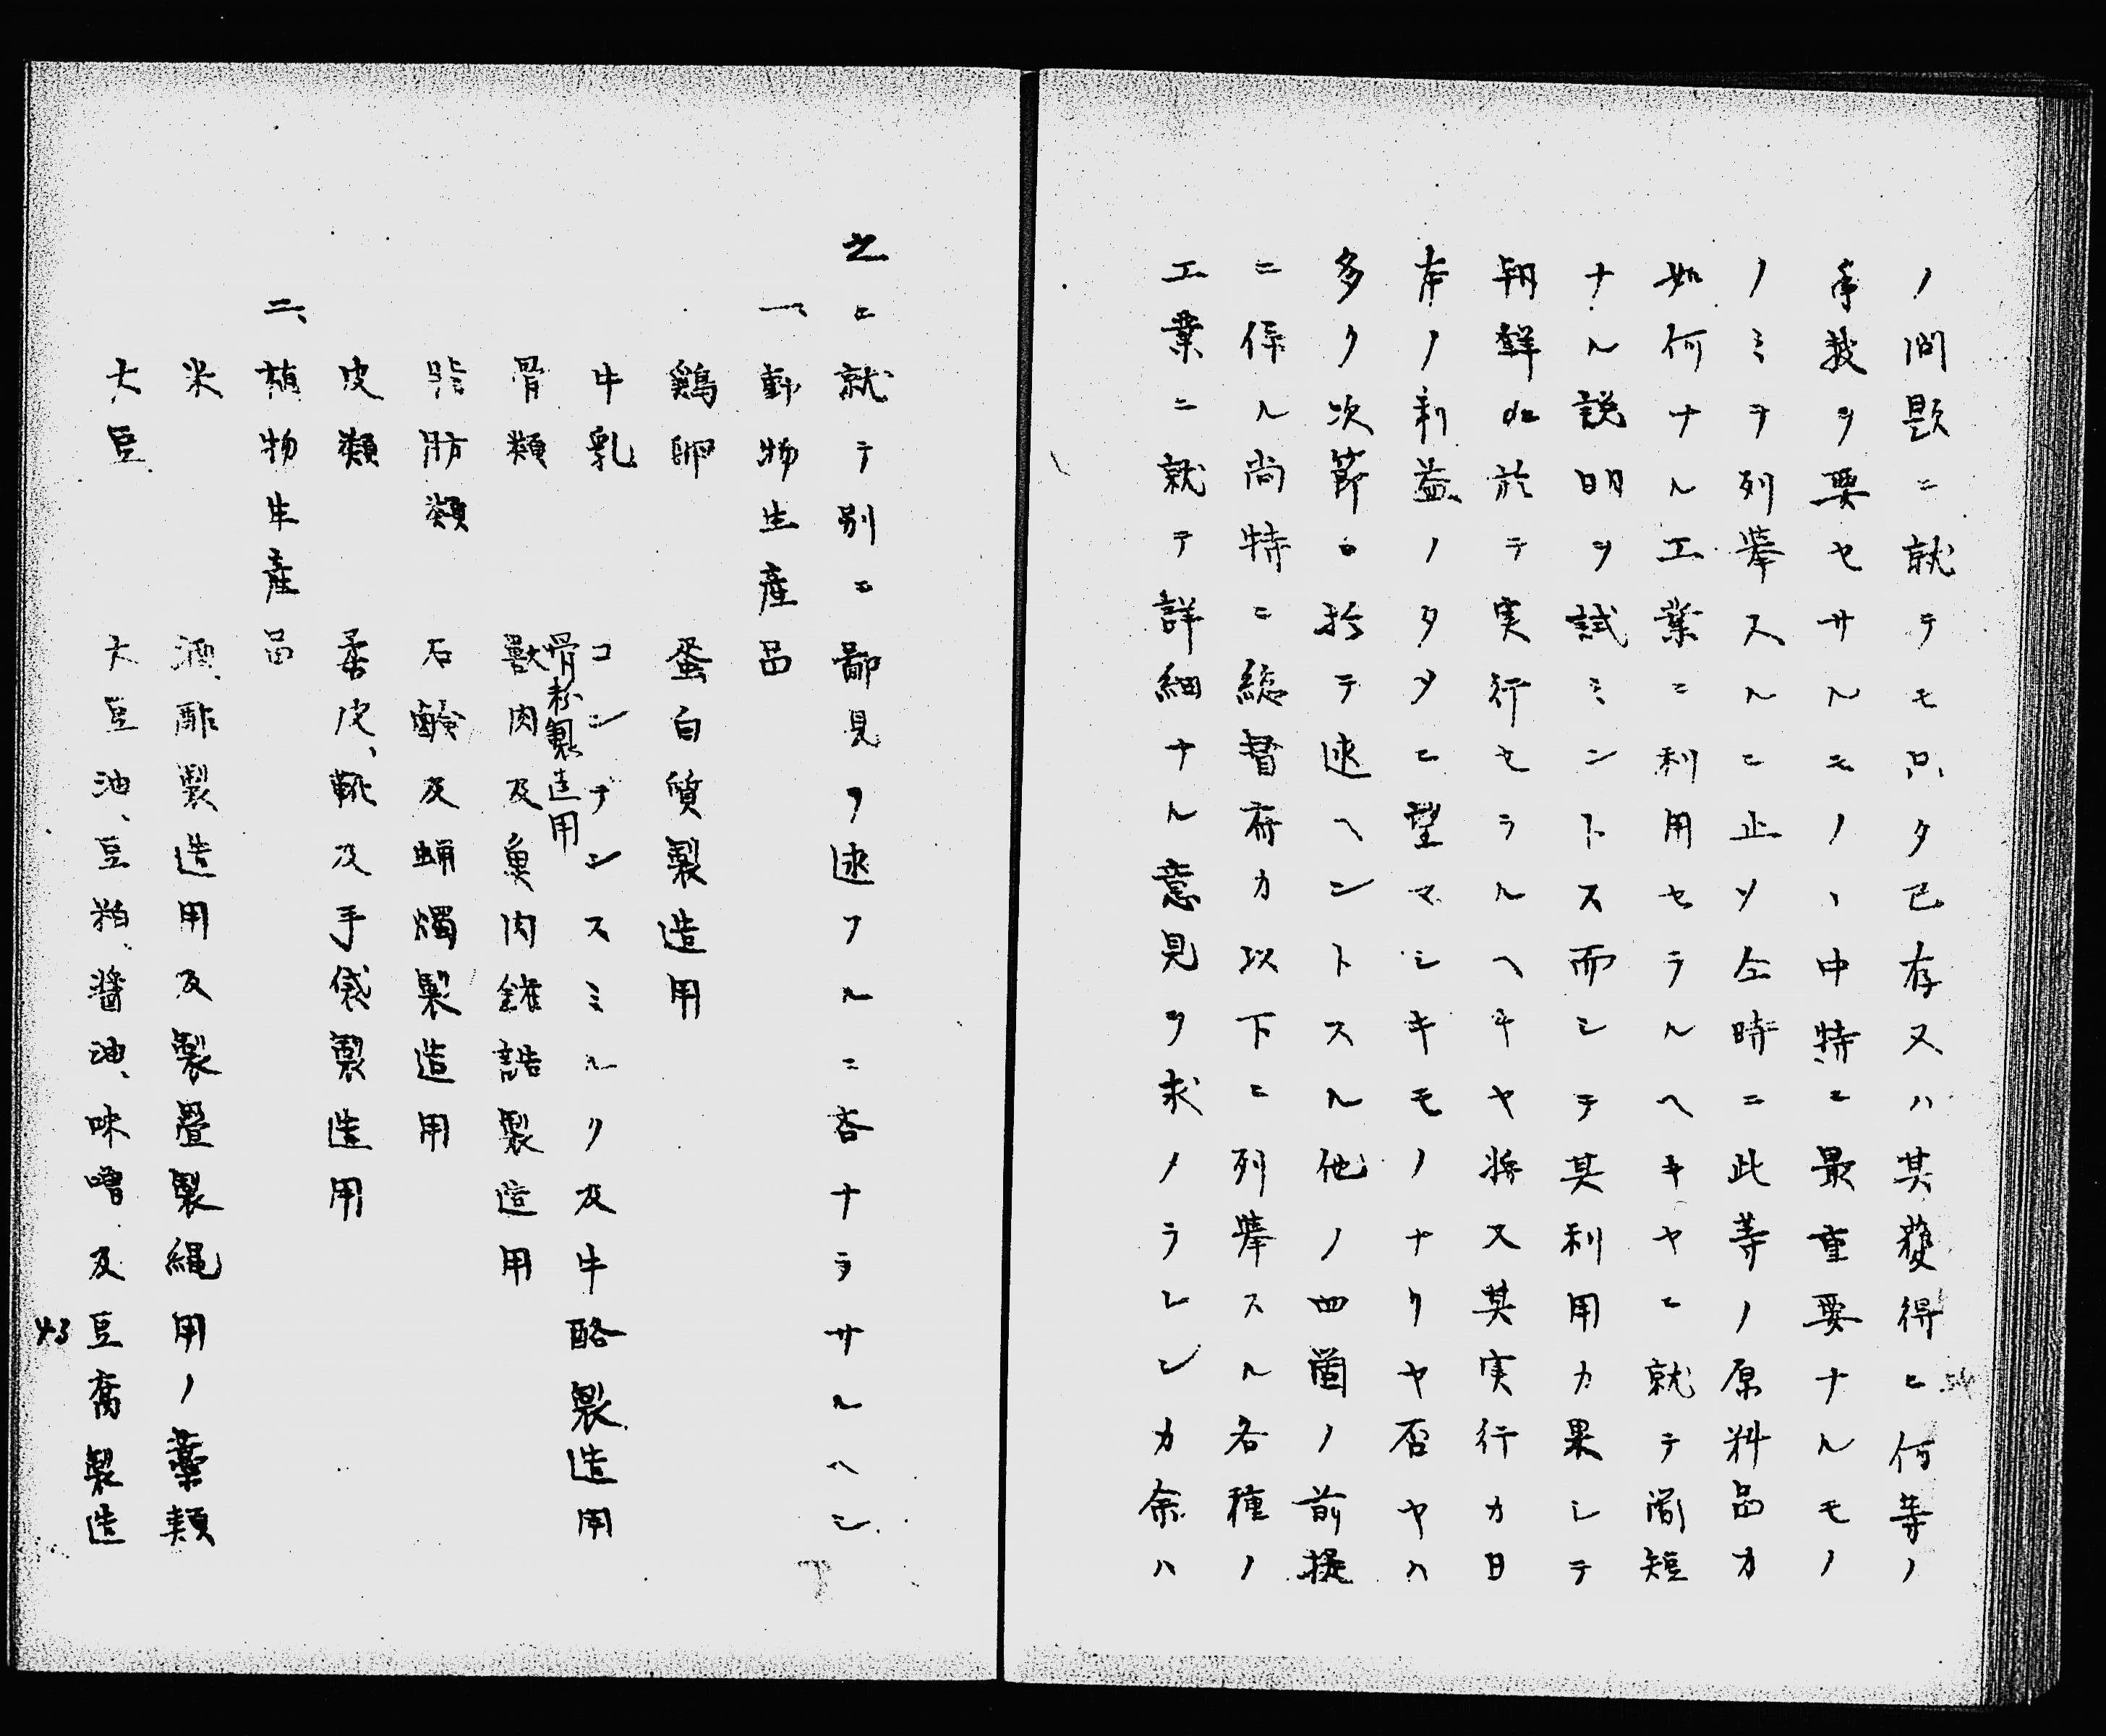 ノ問題ニ就テモ只タ已存又ハ其獲得ニ何等ノ
手数ヲ要セサルモノヽ中特ニ最重要ナルモノ
ノミヲ列挙スルニ止メ左時ニ此等ノ原料品カ
如何ナル工業ニ利用セラルヘキヤニ就テ簡短
ナル説明ヲ試ミントス而シテ其利用カ果シテ
朝鮮ニ於テ実行セラルヘキヤ将又其実行カ日
本ノ利益ノタメニ望マシキモノナリヤ否ヤハ
多ク次節ニ於テ述ヘントスル他ノ四箇ノ前提
ニ係ル尚特ニ総督府カ以下ニ列挙スル各種ノ
工業ニ就テ詳細ナル意見ヲ求メラレンカ余ハ
之ニ就テ別ニ鄙見ヲ述フルニ吝ナラサルヘシ
一、動物生産品
鶏卵 蛋白質製造用
牛乳 コンデンスミルク及牛酪製造用
骨類 骨粉製造用
獣肉及魚肉鑵詰製造用
脂肪類 石鹸及蝋燭製造用
皮類 柔皮、靴及手袋製造用
二、植物生産品
米 酒、酢製造用及製畳製縄用ノ藁類
大豆 大豆油、豆粕、醤油、味噌及豆腐製造
43